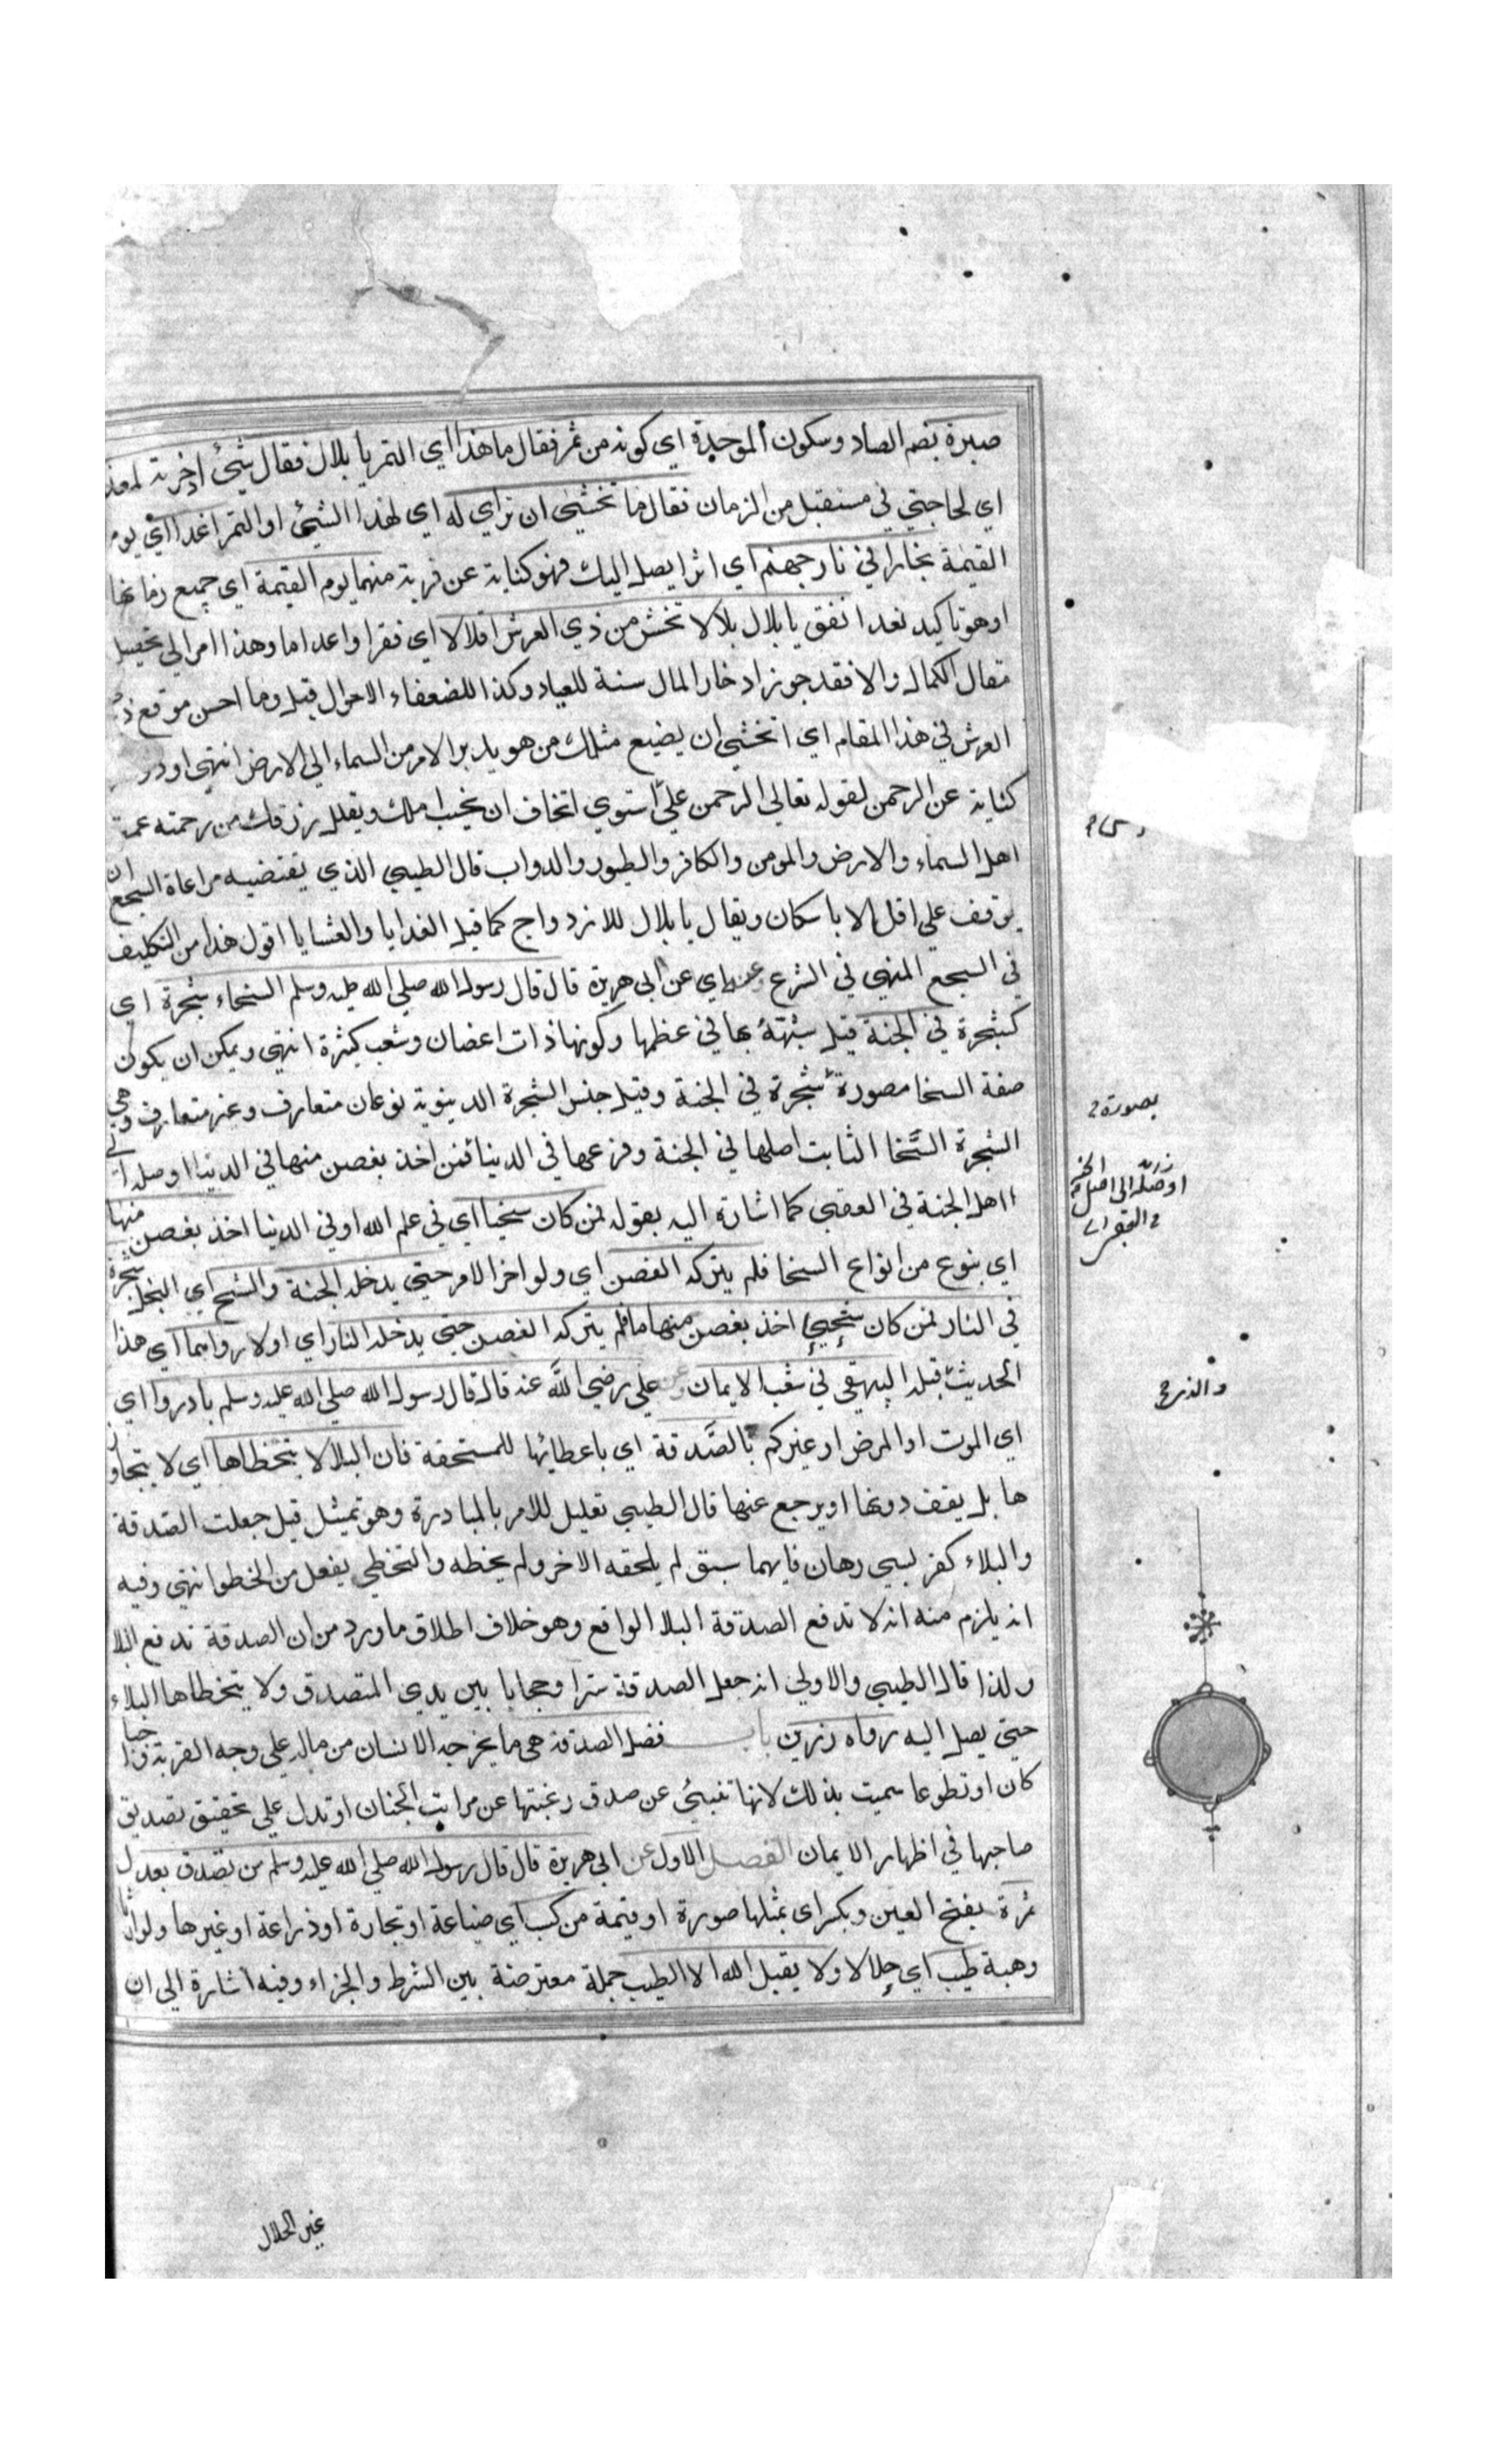 صبرة بضم الصاد وسكون الموحدة اي كونه من تمر فقال ما هذا اي التمر يا بلال فقال شئ ادخرته لغد
اي لحاجتي في مستقبل من الزمان فقال ما تخشى ان تراي له اي لهذا الشيئ او التمر اغدا اي يوم
القيمة بخارا في نار جهنم اي اثرا يصل اليك فهو كناية عن قربة منهما يوم القيمة اي جميع زمانها
اوهو تاكيد لغدا انفق يا بلال بلالا تخش من ذي العرش اقلالا اي فقرا واعداما وهذا امر الي تحصيل
مقال الكمال والا فقد جوز ادخار المال سنة للعيال وكذا للضعفاء الاحوال قيل وما احسن موقع ذي
العرش في هذا المقام اي اتخشي ان يضيع مثلك من هو يدبر الامر من السماء الي الارض انتهي اودر
كناية عن الرحمن لقوله تعالي الرحمن علي استوي اتخاف ان يخيب املك ويقلل رزقك من رحمته عمت
اهل السماء والارض والمومن والكافر والطيور والدواب قال الطيبي الذي يقتضيه مراعاة السجع ان
يوقف علي اقلالا باسكان ويقال يا بلال للازدواج كما قيل الغدايا والعشايا اقول هذا من التكليف
في السجع المنهي في الشرع وعنه اي عن ابي هريرة قال قال رسول الله صلي الله عليه وسلم السخاء شجرة اي
كشجرة في الجنة قيل شبهه بها في عظمها وكونها ذات اغصان وشعب كثيرة انتهي ويمكن ان يكون
صفة السخا مصورة شجرة في الجنة وقيل جنس الشجرة الدينوية نوعان متعارف وغير متعارف وهي
الشجرة السخا الثابت اصلها في الجنة وفرعها في الدينا فمن اخذ بغصن منها في الدينا اوصله الي
اهل الجنة في العقبي كما اشارة اليه بقوله فمن كان سخيا اي في علم الله او في الدينا اخذ بغصن منها
اي بنوع من انواع السخا فلم يتركه الغصن اي ولو اخر الامر حتي يدخله الجنة والشح اي البخل شجرة
في النار فمن كان شحيحا اخذ بغصن منها ما فلم يتركه الغصن حتي يدخله النار اي اولا رواهما اي هذا
الحديث قبله البيهقي في شعب الايمان وعن علي رضي الله عنه قال قال رسول الله صلي الله عليه وسلم بادروا اي
اي الموت او المرض او غيركم بالصدقة اي باعطائها للمستحقة فان البلا لا يتخطاها اي لا يتجاوز
ها بل يقف دونها او يرجع عنها قال الطيبي تعليل للامر بالمبادرة وهو تمثيل قيل جعلت الصدقة
والبلاء كفرسي رهان فايهما سبق لم يلحقه الاخر ولم يخطه والتخطي يفعل من الخطو انتهي وفيه
انه يلزم منه انه لا تدفع الصدقة البلا الواقع وهو خلاف اطلاق ما ورد من ان الصدقة تدفع البلا
ولذا قال الطيبي والاولي انه جعل الصدقة سترا وحجابا بين يدي المتصدق ولا يتخطاها البلاء
حتي يصل اليه رواه رزين باب فضل الصدقة هي ما يخرجه الانسان من ماله علي وجه القربة واجبا
كان او تطوعا سميت بذلك لانها تنبئ عن صدق رغبتها عن مراتب الجنان او تدل علي تحقيق تصديق
صاحبها في اظهار الايمان الفصل الاول عن ابي هريرة قال قال رسول الله صلي الله عليه وسلم من تصدق بعدل
تمرة بفتح العين وبكسر اي بمثلها صورة او قيمة من كسب اي صناعة او تجارة او ذراعة او غيرها ولو ارثا
وهبة طيب اي حلالا ولا يقبل الله الا الطيب جملة معترضة بين الشرط والجزاء وفيه اشارة الي ان
بصورة
اوصله الى اصل
والذي
غير الحلال